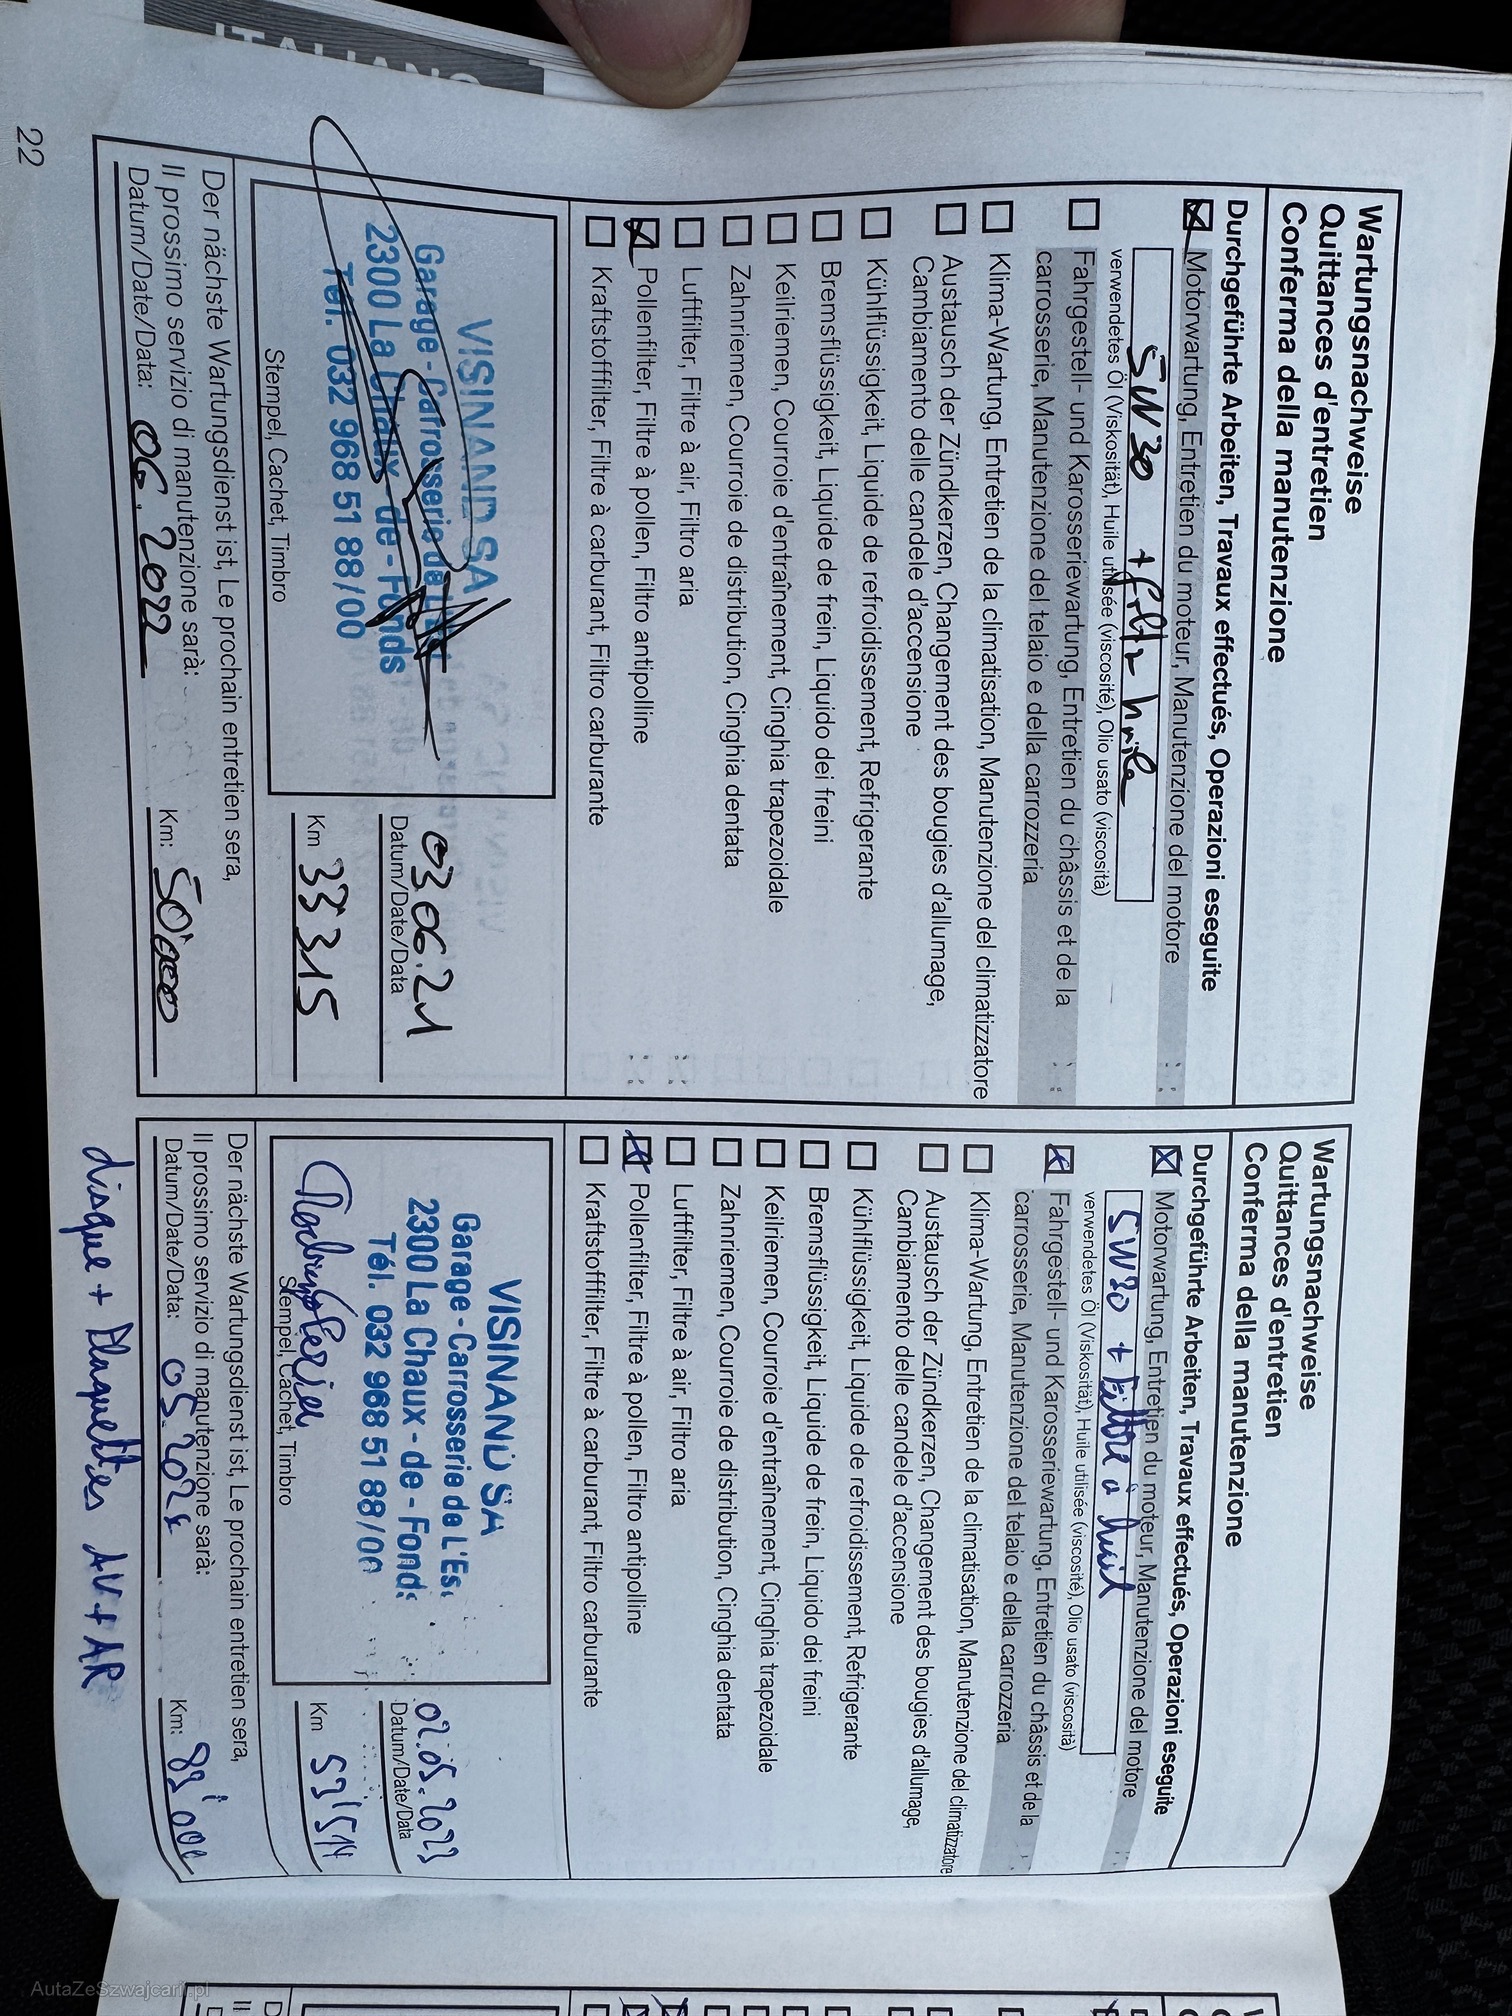 ITALIANO
Wartungsnachweise
Quittances d'entretien
Conferma della manutenzione
Durchgeführte Arbeiten, Travaux effectués, Operazioni eseguite
Motorwartung, Entretien du moteur, Manutenzione del motore
5W30 + filtr huile
verwendetes Öl (Viskosität), Huile utilisée (viscosité), Olio usato (viscosità)
Fahrgestell- und Karosseriewartung, Entretien du châssis et de la
carrosserie, Manutenzione del telaio e della carrozzeria
Klima-Wartung, Entretien de la climatisation, Manutenzione del climatizzatore
Austausch der Zündkerzen, Changement des bougies d'allumage,
Cambiamento delle candele d'accensione
Kühlflüssigkeit, Liquide de refroidissement, Refrigerante
Bremsflüssigkeit, Liquide de frein, Liquido dei freini
Keilriemen, Courroie d'entraînement, Cinghia trapezoidale
Zahnriemen, Courroie de distribution, Cinghia dentata
Luftfilter, Filtre à air, Filtro aria
Pollenfilter, Filtre à pollen, Filtro antipolline
Kraftstofffilter, Filtre à carburant, Filtro carburante
VISINAND SA
Garage - Carrosserie de
2300 La Chaux - de - Fonds
Tél. 032 968 51 88/00
Stempel, Cachet, Timbro
03.06.21
Datum/Date/Data
Km 33315
Der nächste Wartungsdienst ist, Le prochain entretien sera,
Il prossimo servizio di manutenzione sarà:
Datum/Date/Data: 06.2022 Km: 50'000
22
Wartungsnachweise
Quittances d'entretien
Conferma della manutenzione
Durchgeführte Arbeiten, Travaux effectués, Operazioni eseguite
Motorwartung, Entretien du moteur, Manutenzione del motore
5W30 + Filtre à huil
verwendetes Öl (Viskosität), Huile utilisée (viscosité), Olio usato (viscosità)
Fahrgestell- und Karosseriewartung, Entretien du châssis et de la
carrosserie, Manutenzione del telaio e della carrozzeria
Klima-Wartung, Entretien de la climatisation, Manutenzione del climatizzatore
Austausch der Zündkerzen, Changement des bougies d'allumage,
Cambiamento delle candele d'accensione
Kühlflüssigkeit, Liquide de refroidissement, Refrigerante
Bremsflüssigkeit, Liquide de frein, Liquido dei freini
Keilriemen, Courroie d'entraînement, Cinghia trapezoidale
Zahnriemen, Courroie de distribution, Cinghia dentata
Luftfilter, Filtre à air, Filtro aria
Pollenfilter, Filtre à pollen, Filtro antipolline
Kraftstofffilter, Filtre à carburant, Filtro carburante
VISINAND SA
Garage - Carrosserie de L'Es
2300 La Chaux - de - Fonds
Tél. 032 968 51 88/00
Stempel, Cachet, Timbro
02.05.2023
Datum/Date/Data
Km 59'514
Der nächste Wartungsdienst ist, Le prochain entretien sera,
Il prossimo servizio di manutenzione sarà:
Datum/Date/Data: 05.202 Km:
disque + Plaquettes AV + AR
AutaZeSzwajcarii.pl